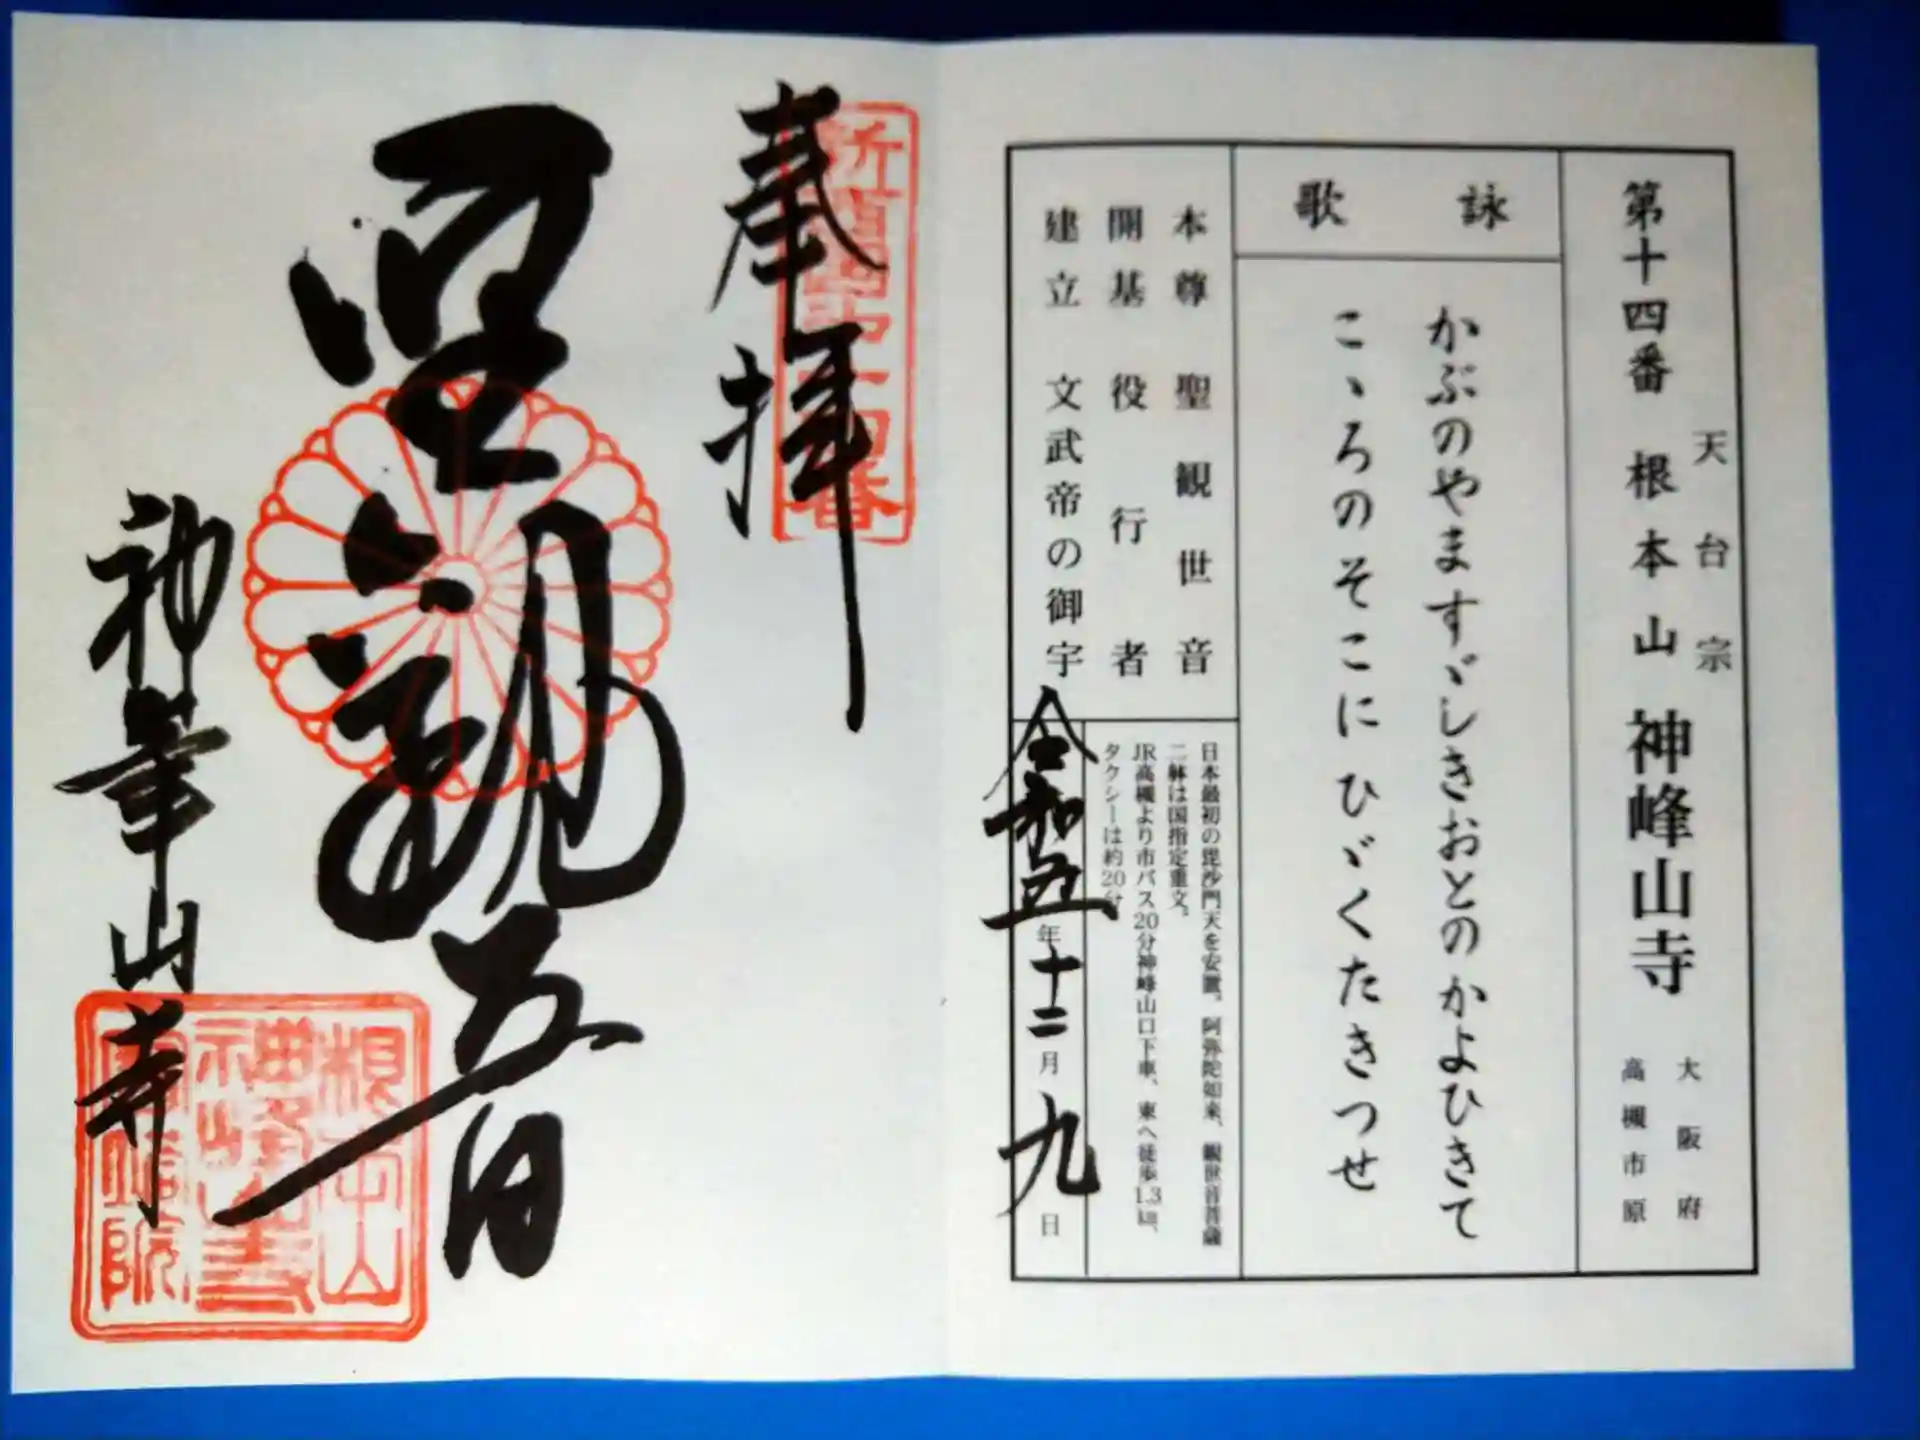 第十四番 根本山 神峰山寺
天台宗
大阪府
高槻市原
詠歌
かぶのやますゞしきおとのかよひきて
こゝろのそこにひゞくたきつせ
本尊 聖観世音
開基 役行者
建立 文武帝の御宇
日本最初の毘沙門天を安置。阿弥陀如来、観世音菩薩
二躰は国指定重文。
JR高槻より市バス20分神峰山口下車、東へ徒歩1.3㎞、
タクシーは約20分
令和五年十二月九日
奉拝
新西国第十四番
聖観音
神峯山寺
根本山
神峰山寺